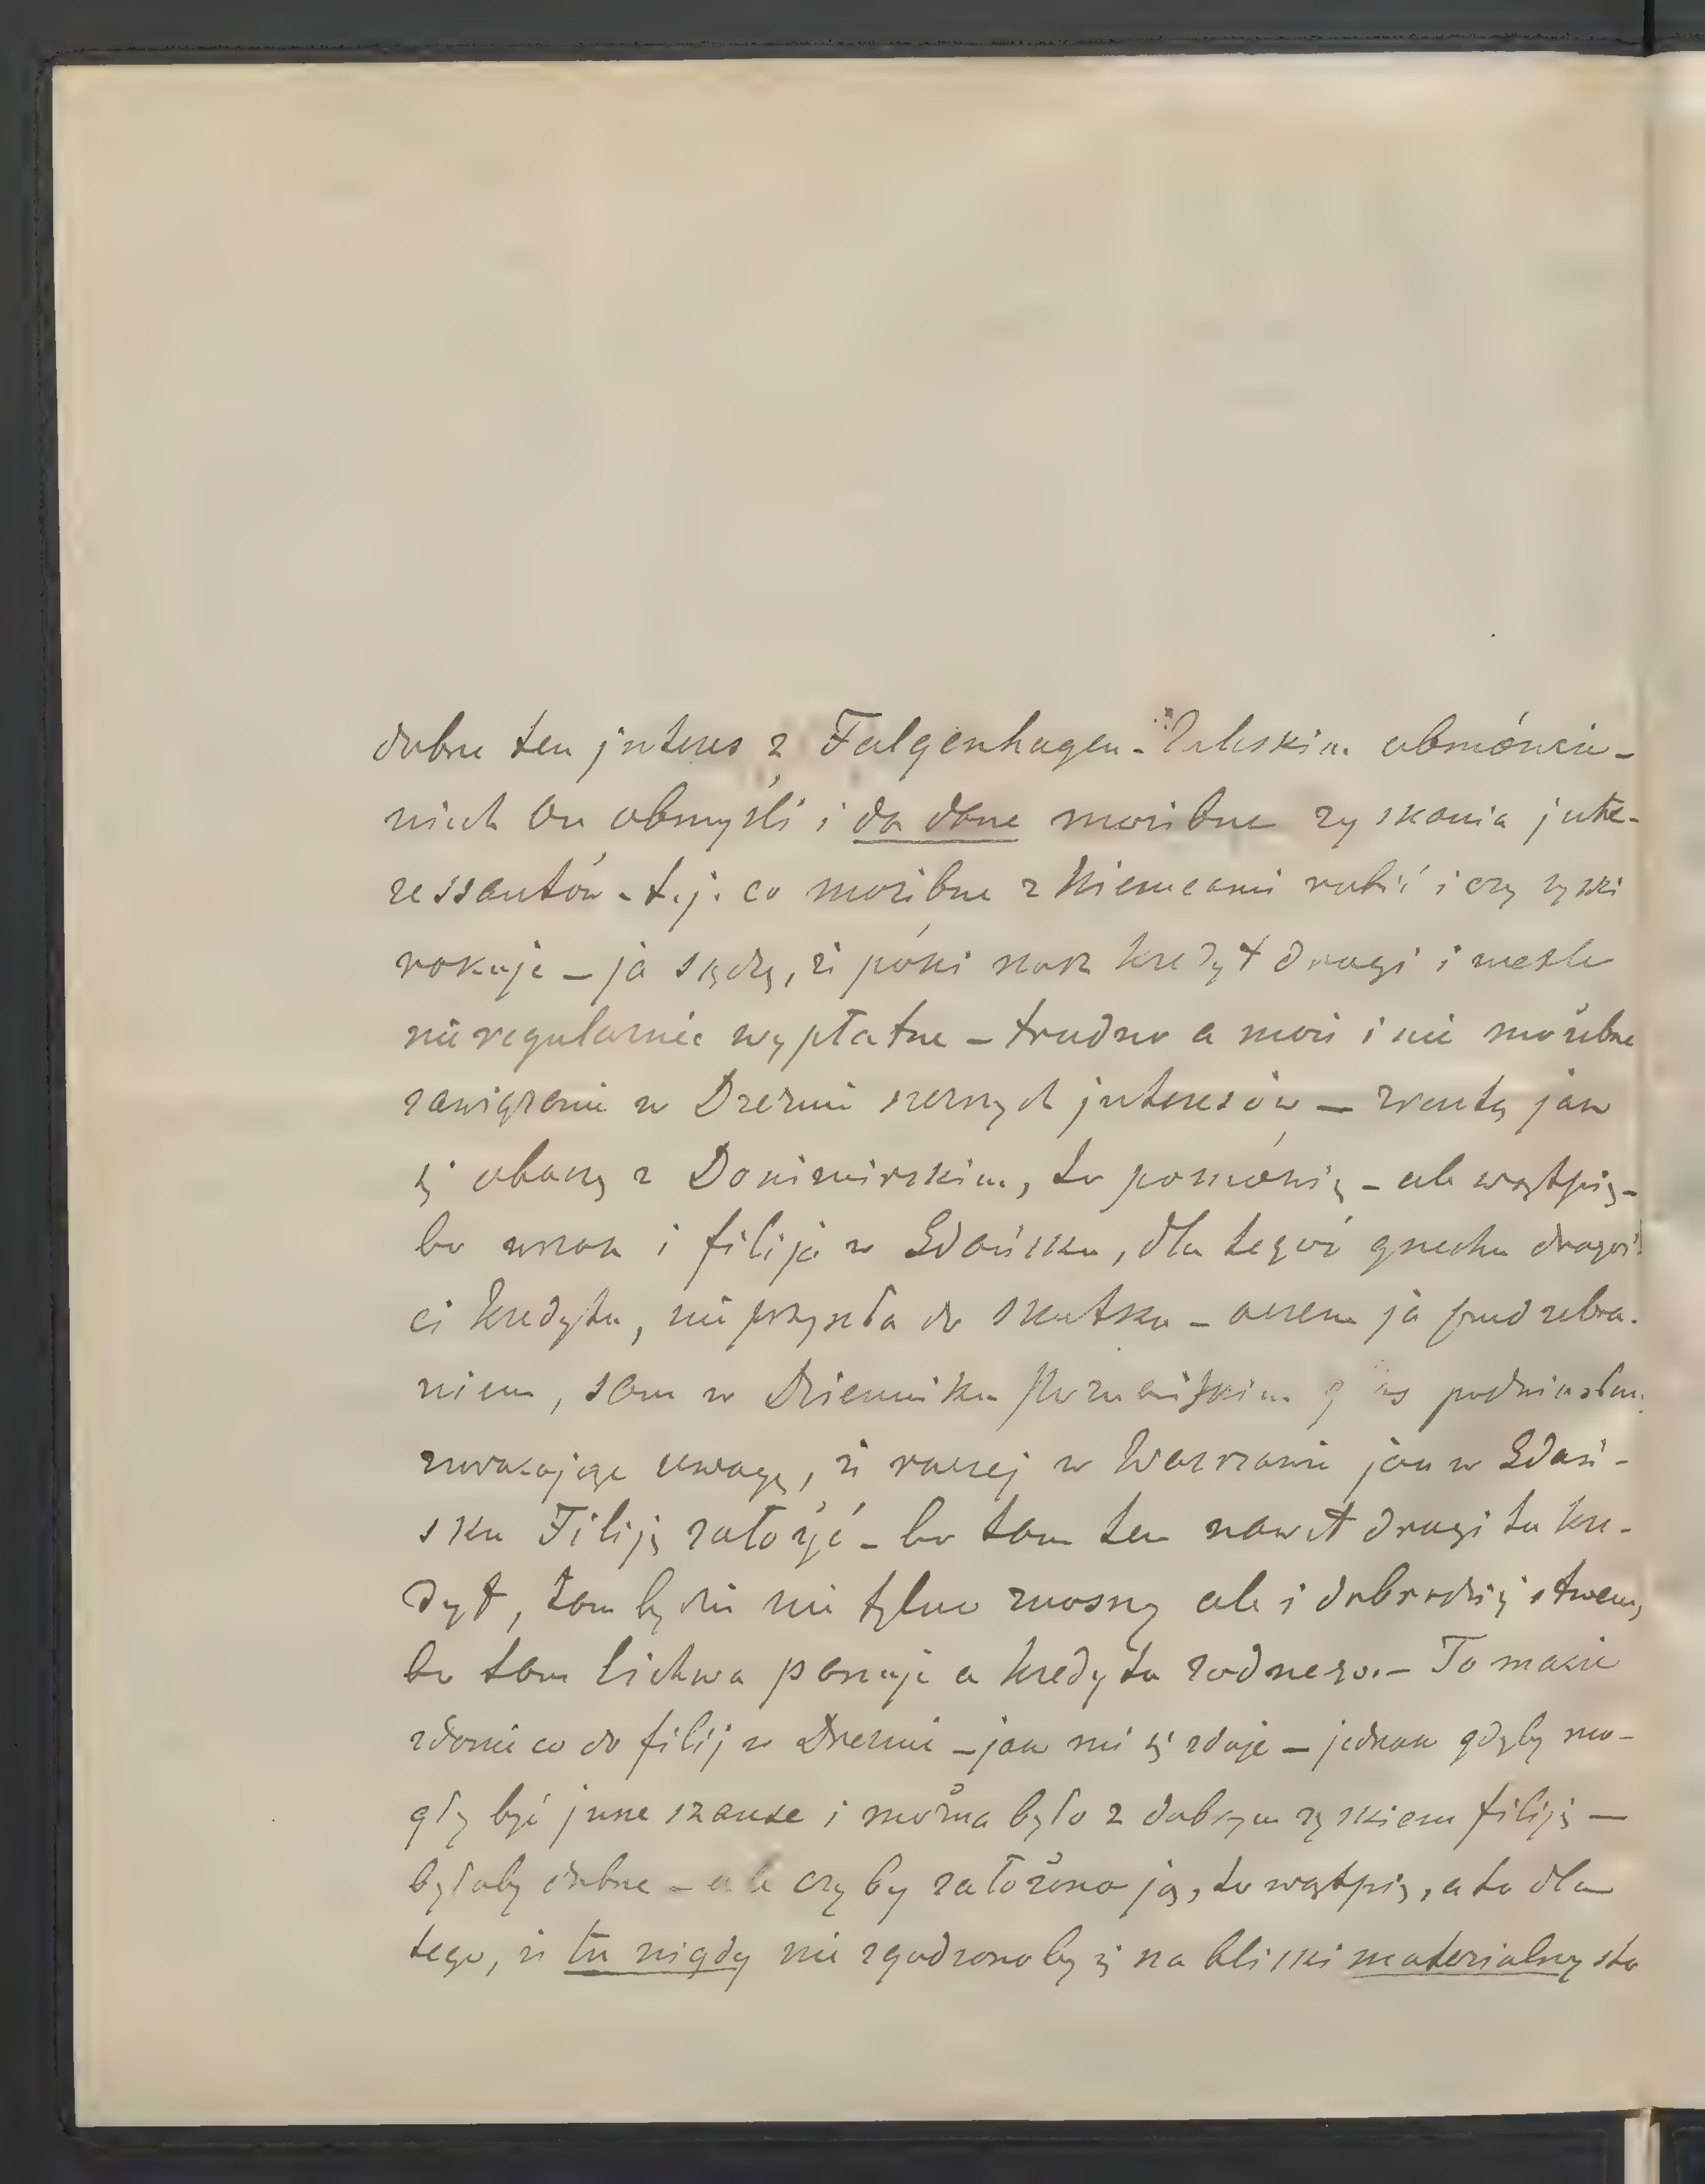 dobre ten jnteres z Falgenhagen - Zaleskim obmówić -
niech On obmyśli i da dane możebne zyskania jnte-
ressantów - t. j. co możebne z Niemcami robić i czy zyski
rokuje - ja sądzę, że póki nasz kredyt drogi i weksle
nie regularnie wypłatne - trudno a może i nie możebne
zawiązenie w Drezni szernych jnteresów - zresztą jak
się obaczę z Donimirskim, to pomówię - ale wątpię -
bo wszak i filija w Gdańsku, dla tegoż grzechu drogoś-
ci kredytu, nie przyszła do skutku - oczem ja przed zebra-
niem, sam w Dzienniku Poznańskim głos podniosłem
zwracając uwagę, że raczej w Warszawie jak w Gdań-
sku Filiję założyć - bo tam ten nawet drogi tu kre-
dyt, tam będzie nie tylko znosny ale i dobrodziejstwem,
bo tam lichwa panuje a kredytu żadnego. - To moje
zdanie co do filij w Dreznie - jak mi się zdaje - jednak gdyby mo-
gły być jnne szanse i można było z dobrym zyskiem filiję -
byłoby dobrze - ale czyby założono ją, to wątpię, a to dla
tego, że tu nigdy nie zgodzonoby się na bliski materialny sto